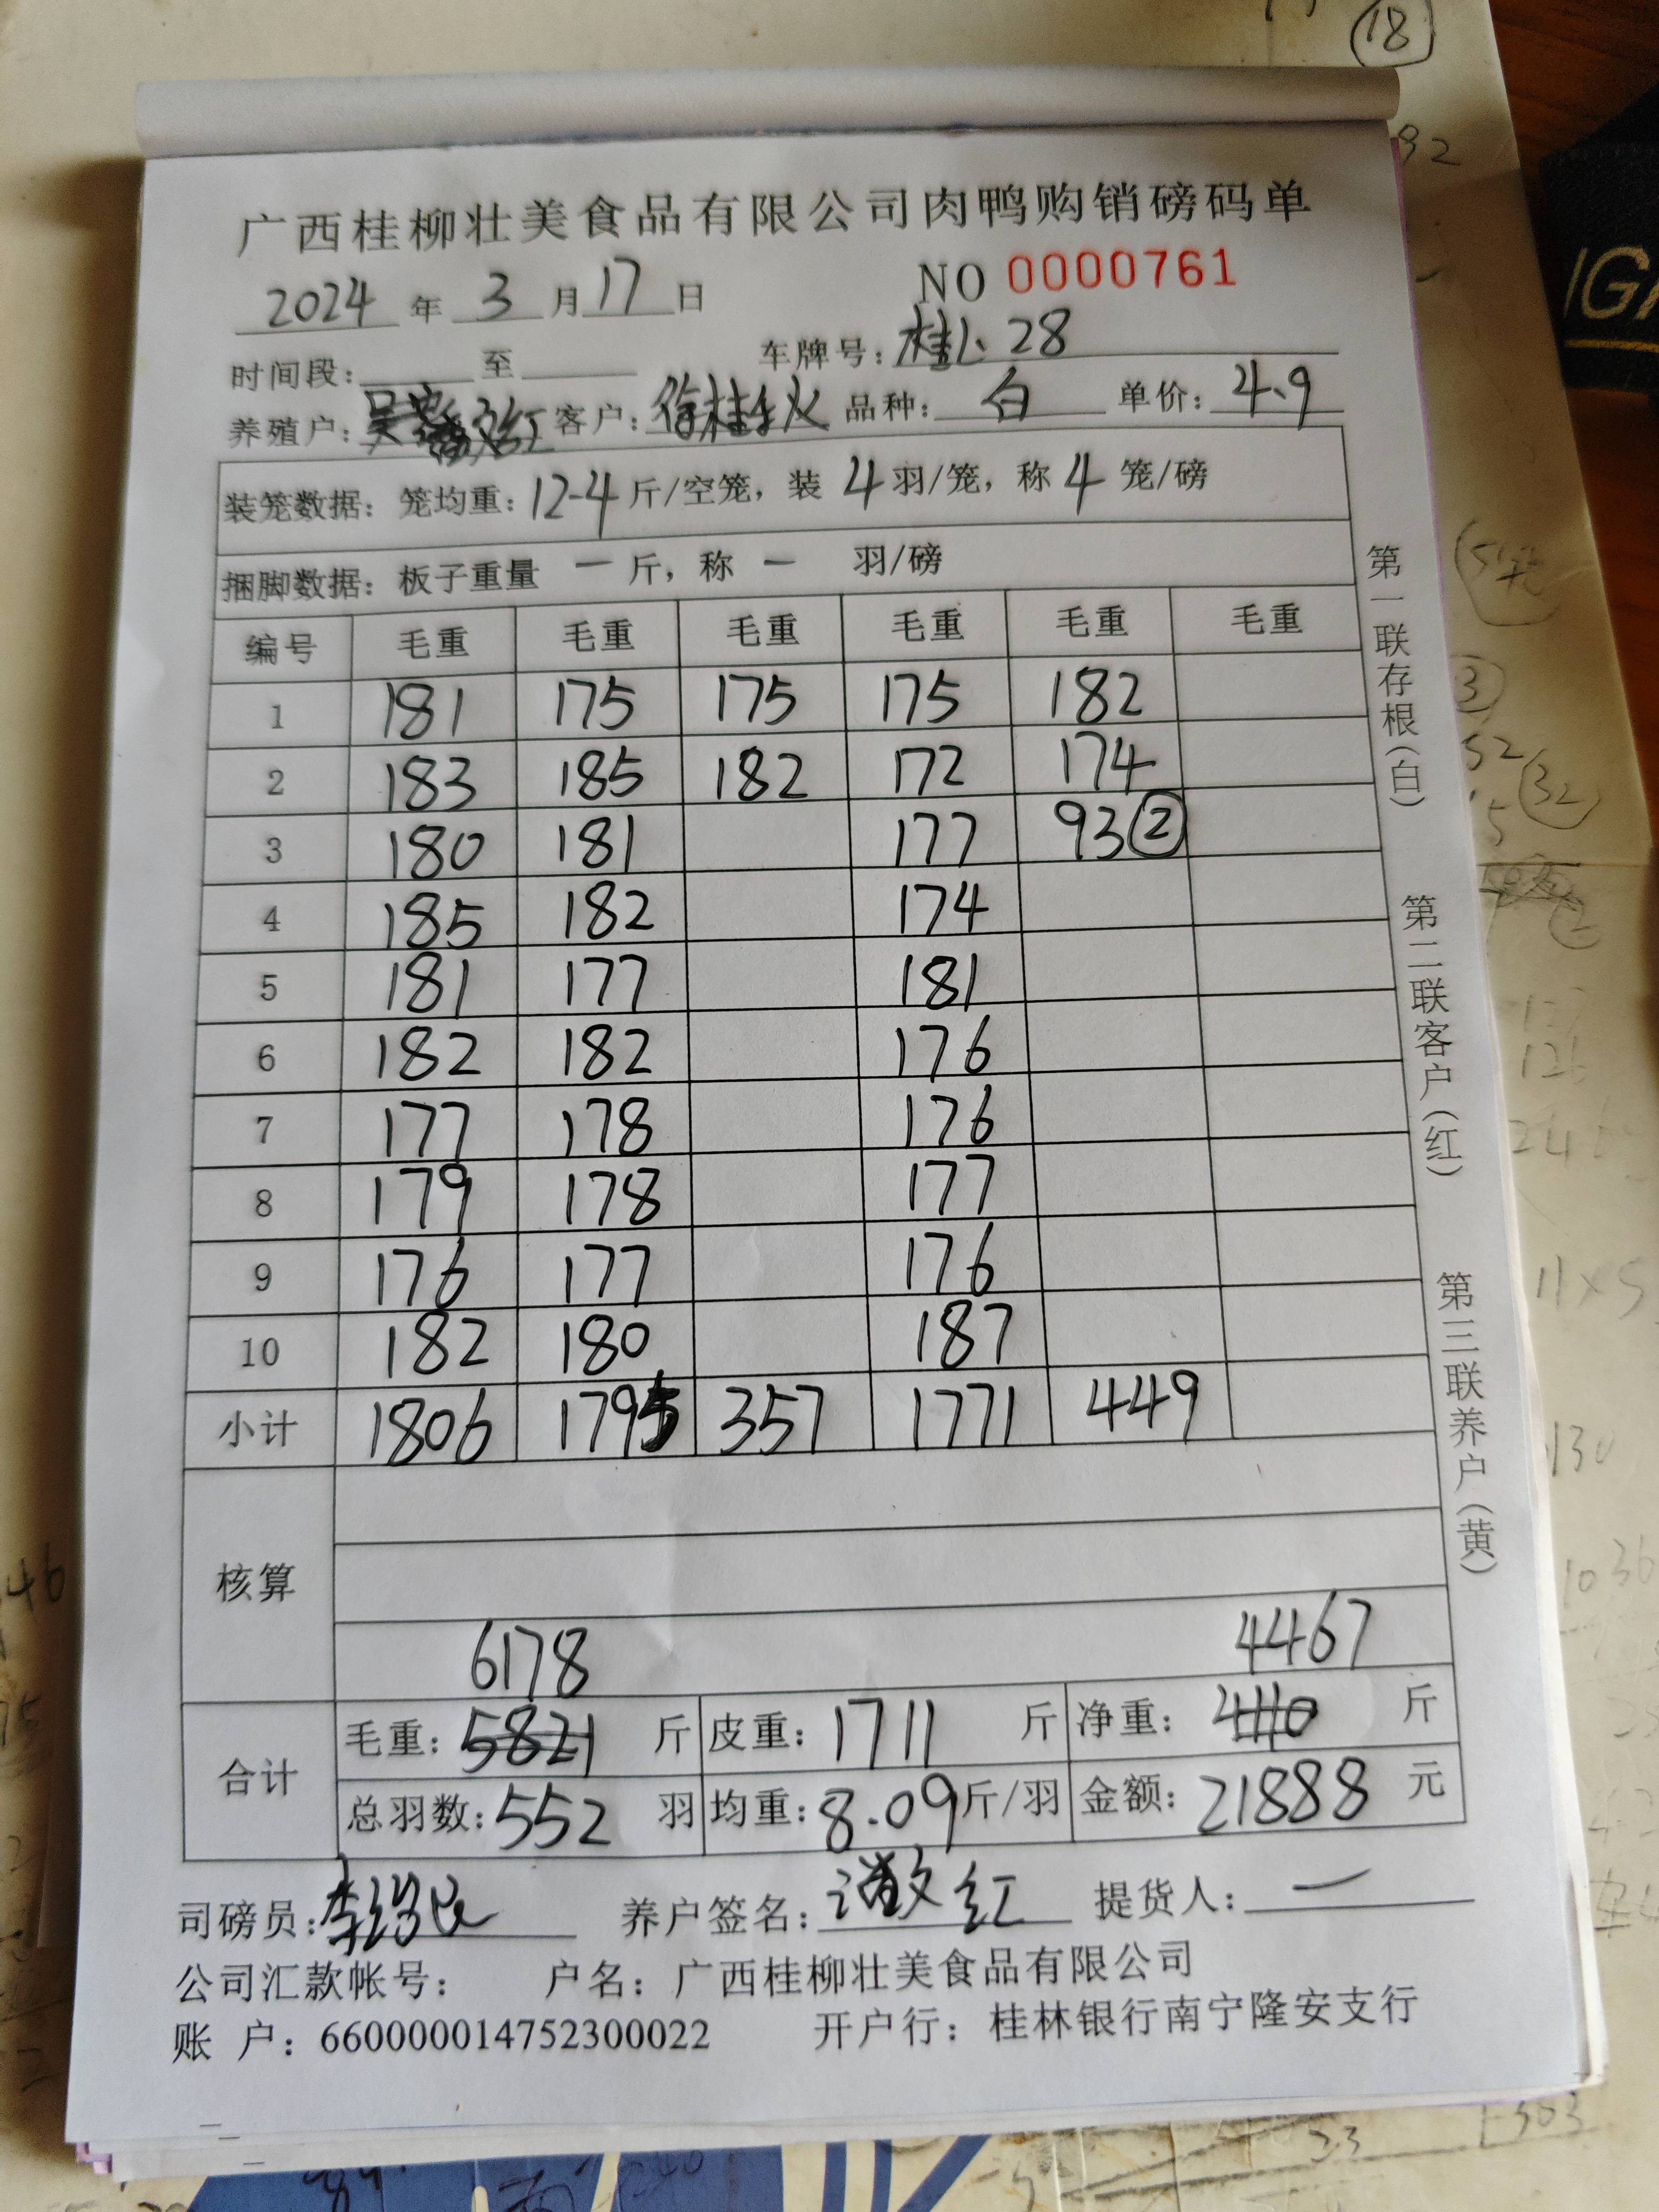 广西桂柳壮美食品有限公司肉鸭购销磅码单
2024 年 3 月 17 日 NO 0000761
时间段: 至 车牌号: 桂小28
养殖户: 红 客户: 徐桂秋 品种: 白 单价: 4.9
装笼数据: 笼均重: 12-4 斤/空笼, 装 4 羽/笼, 称 4 笼/磅
捆脚数据: 板子重量 一 斤, 称 一 羽/磅
编号 毛重 毛重 毛重 毛重 毛重 毛重
1 181 175 175 175 182
2 183 185 182 172 174
3 180 181 177 93②
4 185 182 174
5 181 177 181
6 182 182 176
7 177 178 176
8 179 178 177
9 176 177 176
10 182 180 187
小计 1806 1795 357 1771 449
核算
6178 4467
合计 毛重: 5821 斤 皮重: 1711 斤 净重: 4110 斤
总羽数: 552 羽 均重: 8.09 斤/羽 金额: 21888 元
司磅员: 李 养户签名: 文红 提货人: 一
公司汇款帐号: 户名: 广西桂柳壮美食品有限公司
账 户: 660000014752300022 开户行: 桂林银行南宁隆安支行
第一联存根(白)
第二联客户(红)
第三联养户(黄)
18
32
130